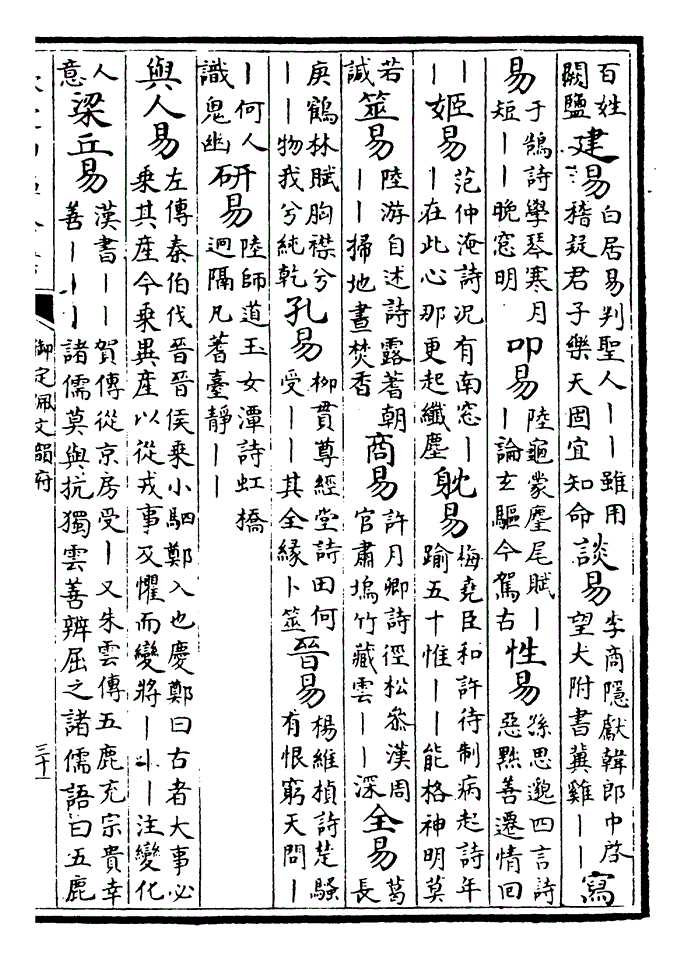 百姓闕鹽建易白居易判聖人丨丨雖用稽疑君子樂天固宜知命談易李商隱獻韓郎中啓望犬附書冀雞丨丨寫
易于鵠詩學琴寒月短丨丨晚窓明叩易陸龜蒙麈尾賦丨丨論玄驅今駕古性易孫思邈四言詩惡黙善遷情回
丨丨丨姬易范仲淹詩況有南窓丨丨在此心那更起纖塵躭易梅堯臣和許待制病起詩年踰五十惟丨丨能格神明莫
若諴筮易陸游自述詩露蓍朝丨丨掃地晝焚香商易許月卿詩徑松叅漢周官肅塢竹藏雲丨丨深全易葛長
庚鶴林賦胸襟兮丨丨物我兮純乾孔易柳貫尊經堂詩田何受丨丨其全緣卜筮晉易楊維楨詩楚騷有恨窮天問丨
丨何人識鬼幽研易陸師道玉女潭詩虹橋迥隔凡蓍臺靜丨丨
與人易左傳秦伯伐晉晉侯乘小駟鄭入也慶鄭曰古者大事必乘其產今乘異產以從戎事及懼而變將丨丨丨注變化
人意梁丘易漢書丨丨賀傳從京房受丨又朱雲傳五鹿充宗貴幸善丨丨丨諸儒莫與抗獨雲善辨屈之諸儒語曰五鹿
御定佩文韻府
三十一